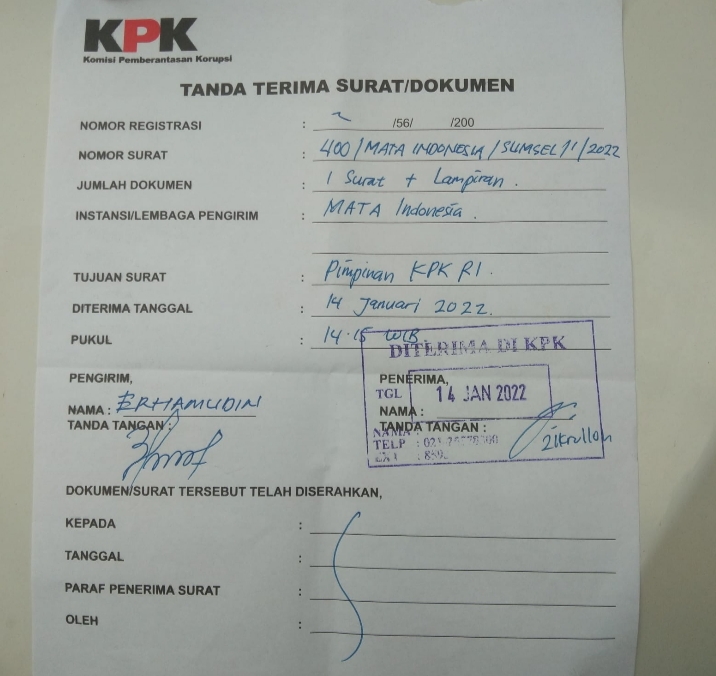 KPK
Komisi Pemberantasan Korupsi
TANDA TERIMA SURAT/DOKUMEN
NOMOR REGISTRASI : /56/ /200
NOMOR SURAT : 400/MATA INDONESIA/SUMSEL/1/2022
JUMLAH DOKUMEN : 1 Surat + Lampiran.
INSTANSI/LEMBAGA PENGIRIM : MATA Indonesia.
TUJUAN SURAT : Pimpinan KPK RI.
DITERIMA TANGGAL : 14 Januari 2022.
PUKUL : 14.15 WIB
DITERIMA DI KPK
PENGIRIM, PENERIMA,
TGL 14 JAN 2022
NAMA : ERHAMUDIN NAMA :
TANDA TANGAN : TANDA TANGAN :
NAMA
TELP : 021
EXT
DOKUMEN/SURAT TERSEBUT TELAH DISERAHKAN,
KEPADA :
TANGGAL :
PARAF PENERIMA SURAT :
OLEH :